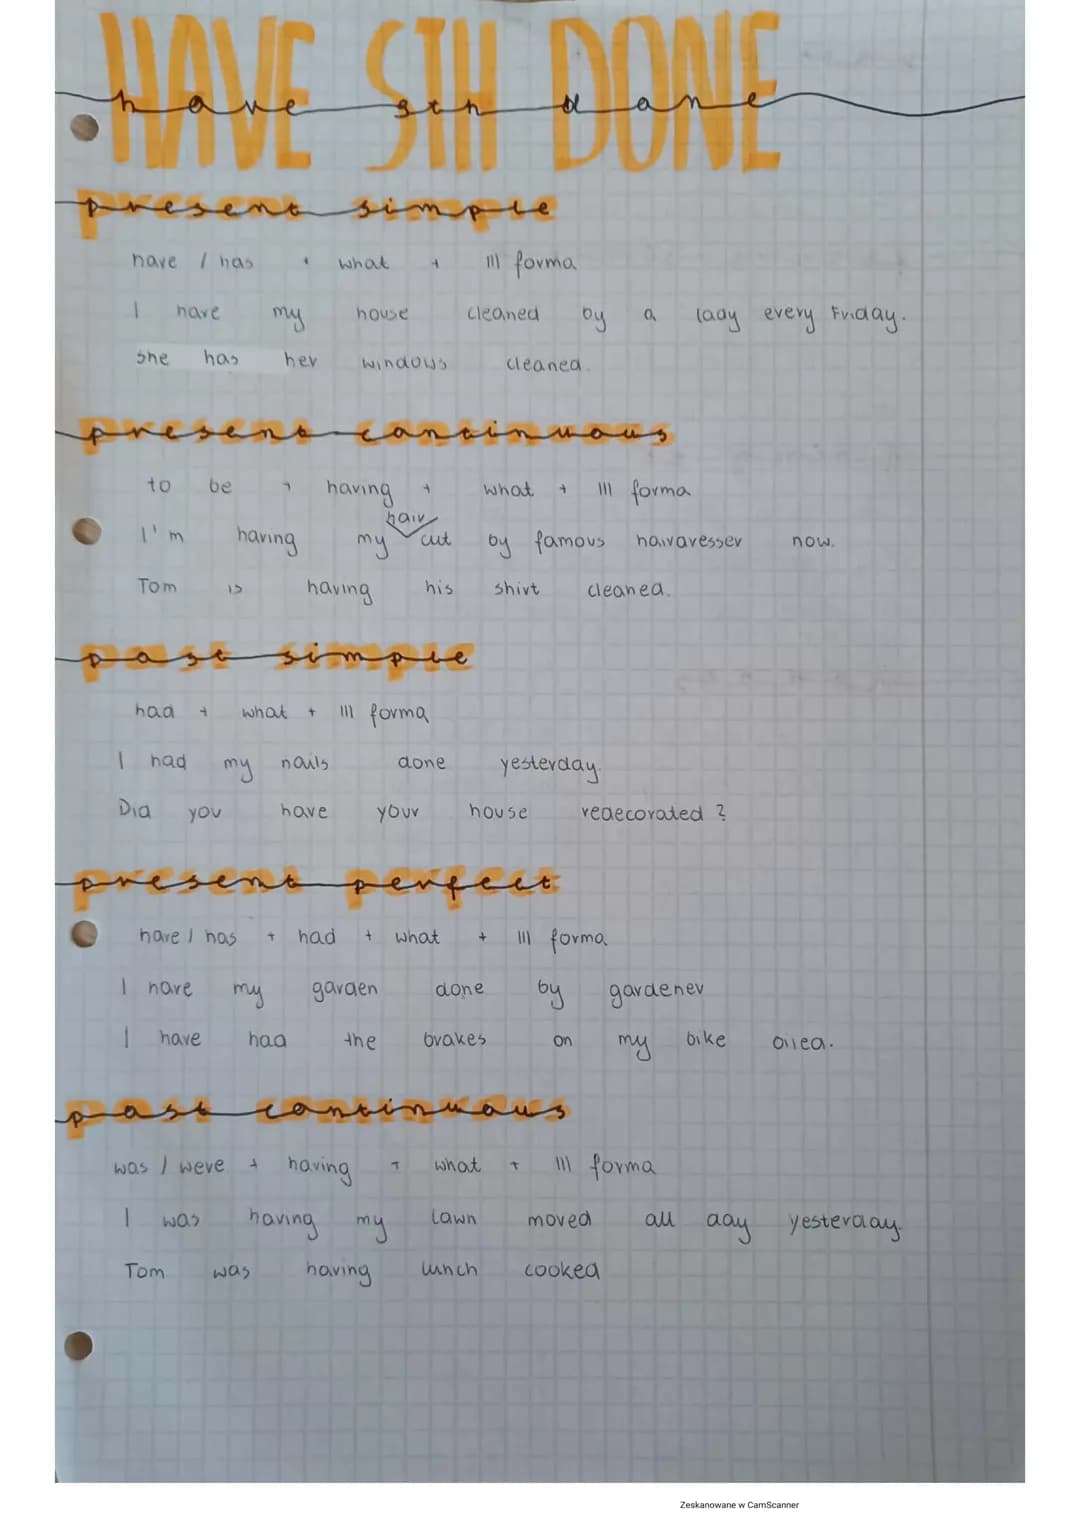 HAVE STH DONE
have sth done
present simple
have / has + what + III forma
I have my house cleaned by a lady every Friday.
She has her windows cleaned.
present continuous
to be + having + what + III forma
I'm having my hair cut by famous hairdresser now.
Tom is having his shirt cleaned.
past simple
had + what + III forma
I had my nails done yesterday.
Did you have your house redecorated ?
present perfect
have / has + had + what + III forma
I have my garden done by gardener
I have had the brakes on my bike oiled.
past continuous
was / were + having + what + III forma
I was having my lawn moved all day yesterday.
Tom was having lunch cooked
Zeskanowane w CamScanner